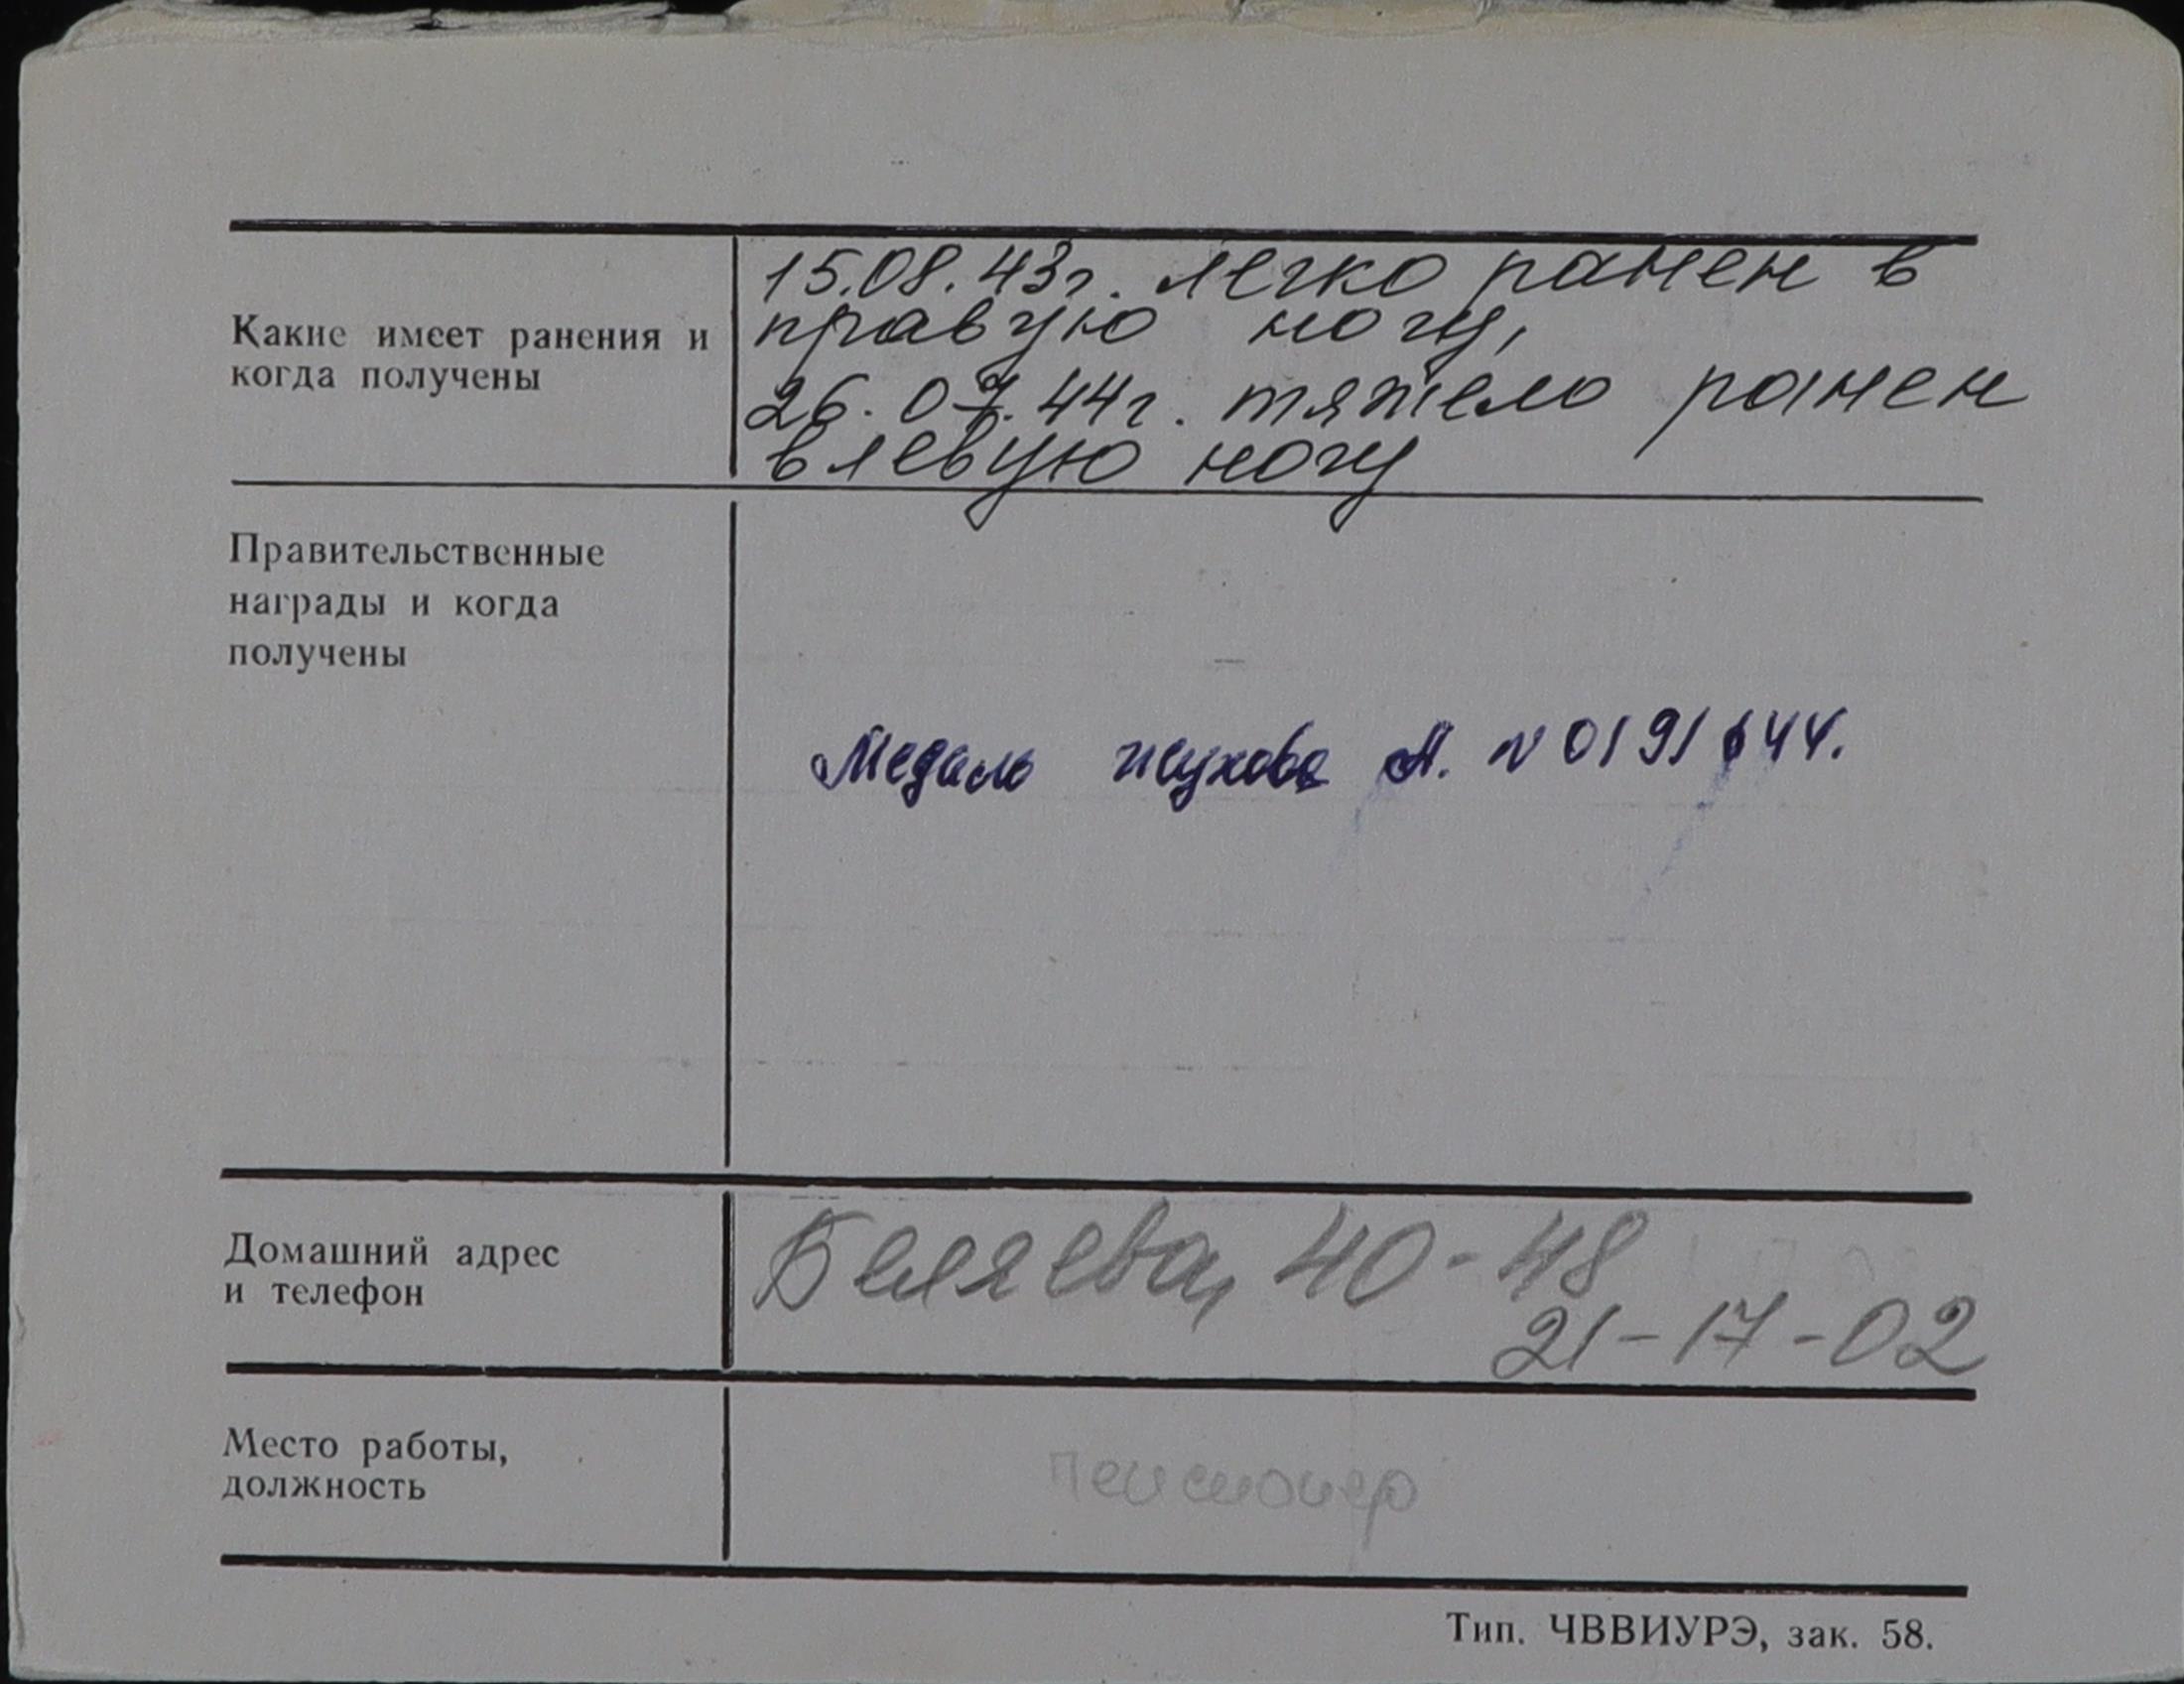 Какие имеет ранения и
когда получены
15.08.43г. легко ранен в
правую ногу,
26.07.44г. тяжело ранен
в левую ногу
Правительственные
награды и когда
получены
Медаль Жукова А. № 0191644.
Домашний адрес
и телефон
Беляева, 40-48
21-17-02
Место работы,
должность
пенсионер
Тип. ЧВВИУРЭ, зак. 58.